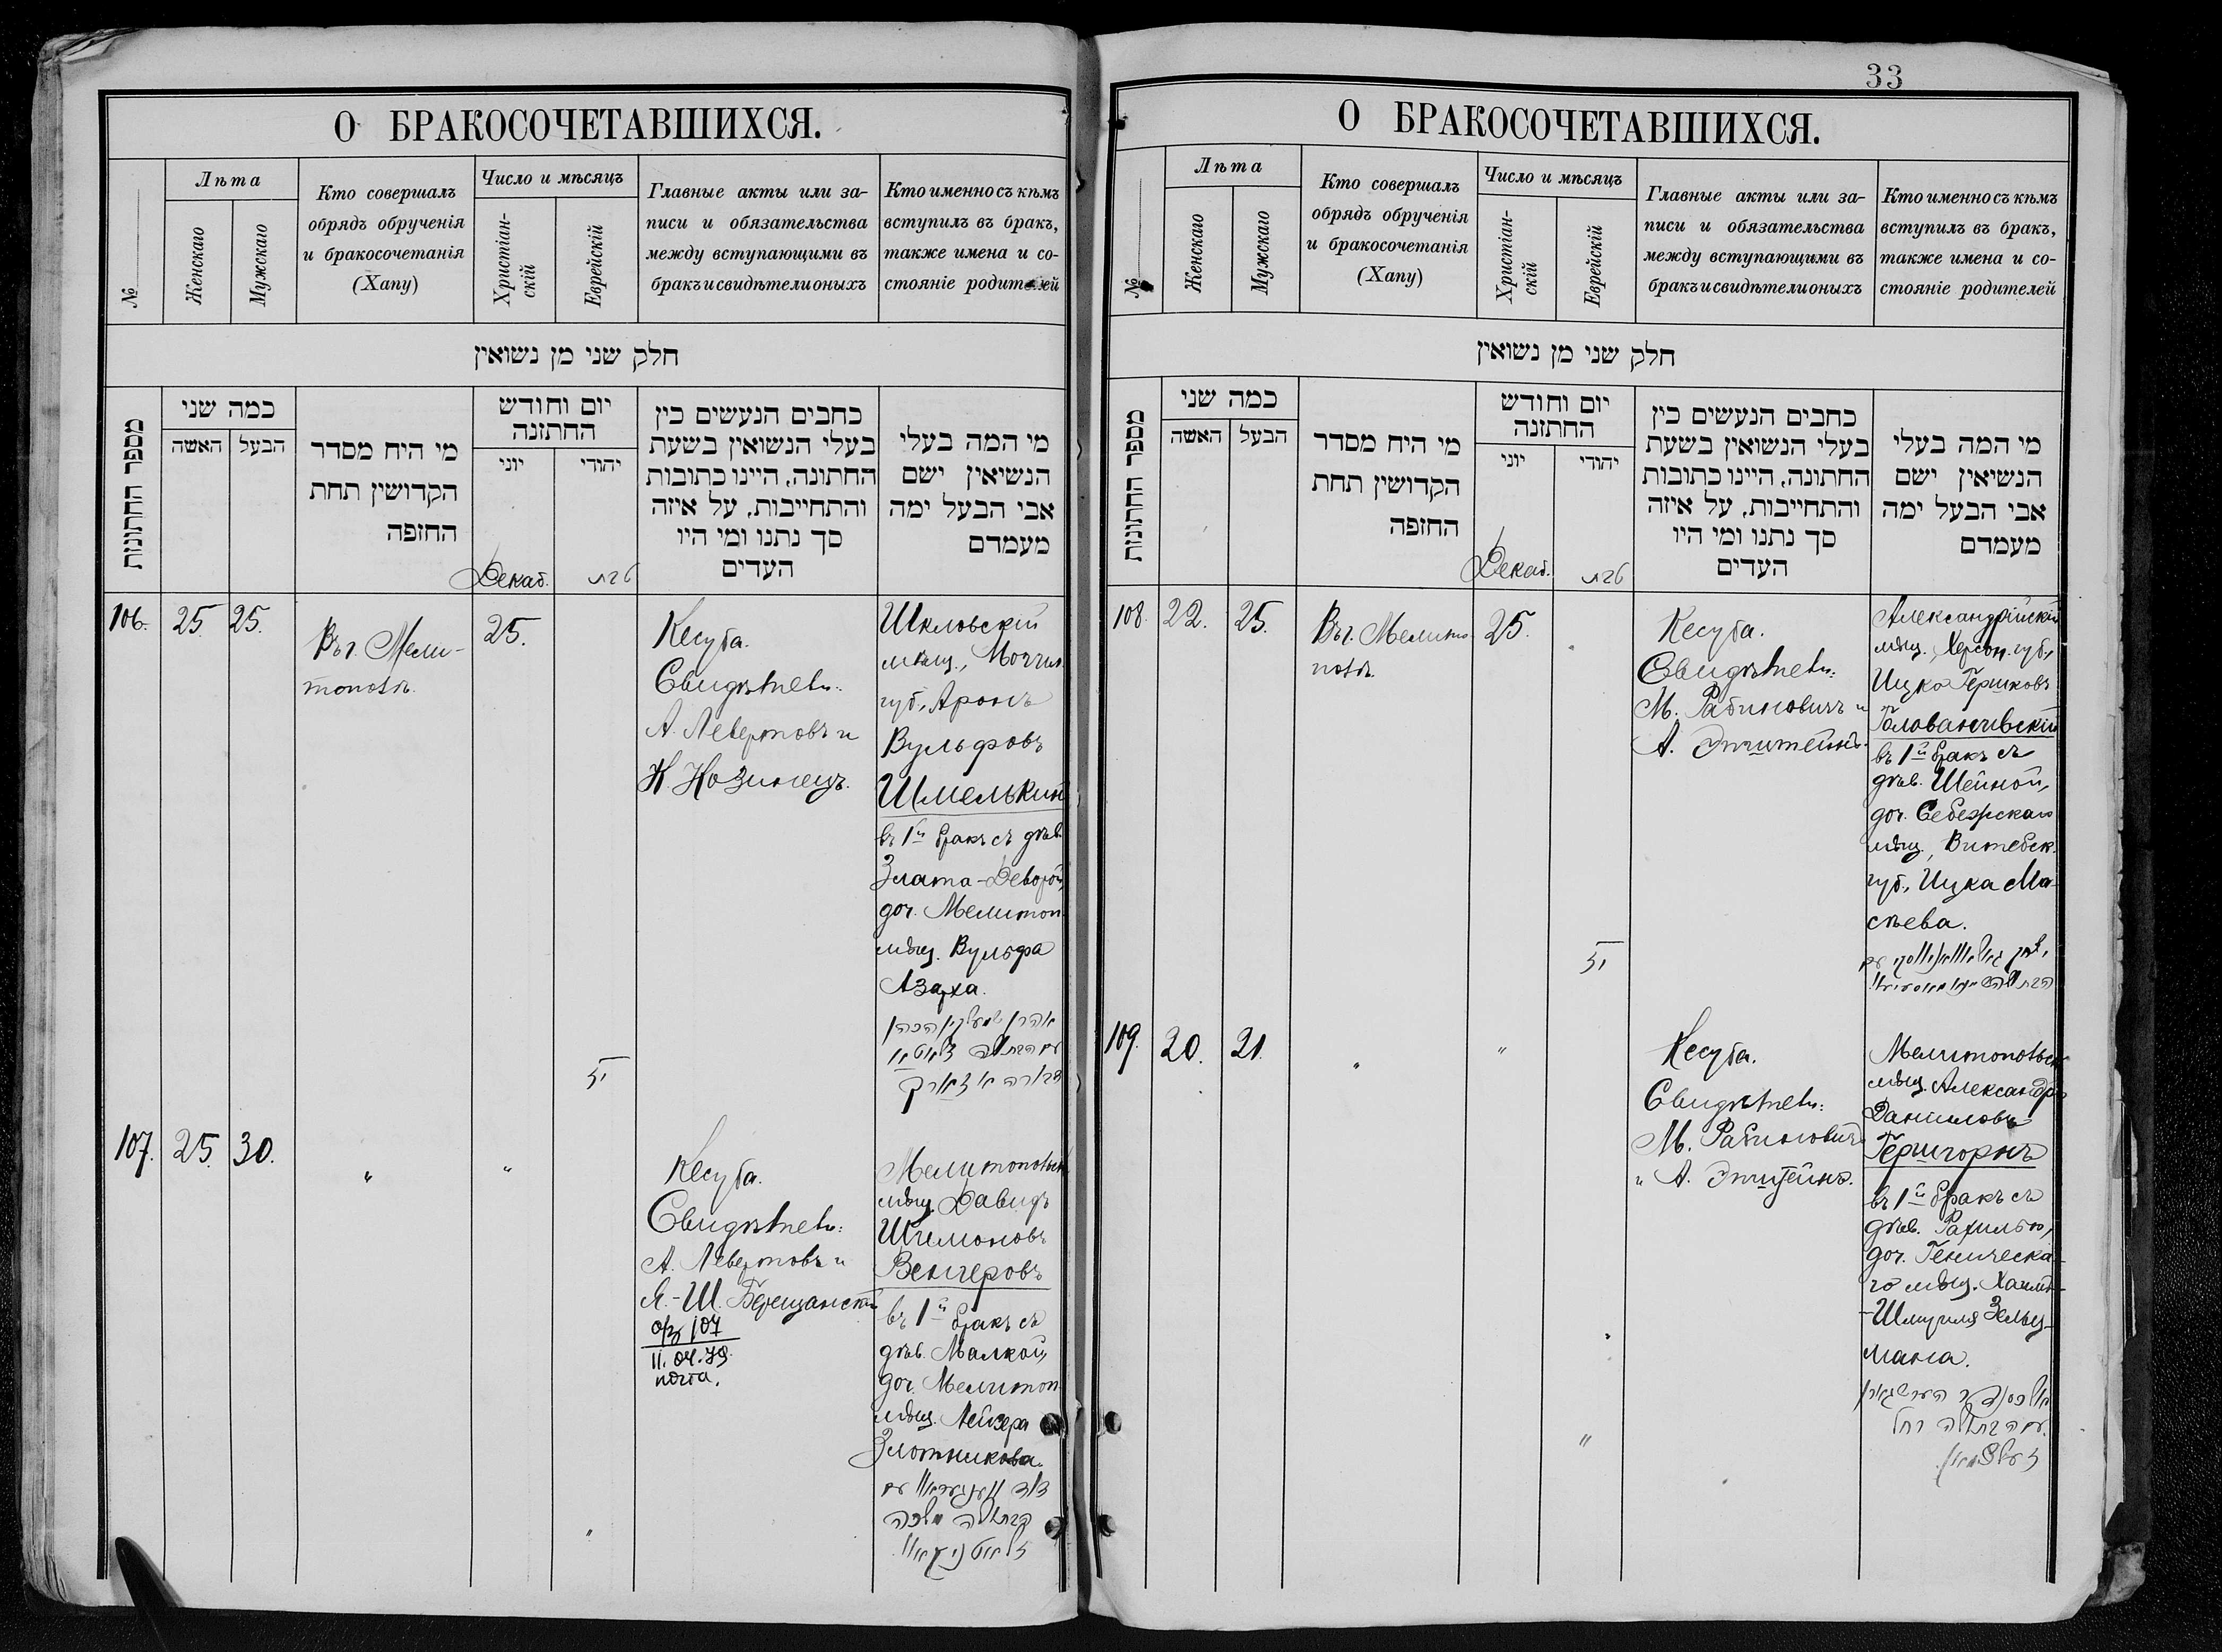 О БРАКОСОЧЕТАВШИХСЯ.
№
Лѣта
Женскаго
Мужскаго
Кто совершалъ
обрядъ обрученія
и бракосочетанія
(Хапу)
Число и мѣсяцъ
Христіан-
скій
Еврейскій
Главные акты или за-
писи и обязательства
между вступающими въ
бракъ и свидѣтели оныхъ
Кто именно съ кѣмъ
вступилъ въ бракъ,
также имена и со-
стояніе родителей
חלק שני מן נשואין
מספר החתונות
כמה שני
האשה
הבעל
מי היח מסדר
הקדושין תחת
החופה
יום וחודש
החתונה
יוני
יהודי
Декаб.
טבת
כחבים הנעשים כין
בעלי הנשואין בשעת
החתונה, היינו כתובות
והתחייבות, על איזה
סך נתנו ומי היו
העדים
מי המה בעלי
הנשיאין ישם
אבי הבעל ימה
מעמדם
106. 25. 25.
Въ г. Мели-
тополѣ.
25.
Кесуба.
Свидѣтели:
А. Левертовъ и
К. Козинецъ.
Шкловскій
мѣщ., Могил.
губ., Аронъ
Вульфовъ
Шмелькин
въ 1й бракъ съ дѣв.
Злата-Деворой,
доч. Мелитоп.
мѣщ. Вульфа
Азарха.
אהרן שמעלקין הכהן
עם הבתולה זלאטא
דבורה אזארך
107. 25. 30.
„
„
Кесуба.
Свидѣтели:
А. Левертовъ и
Я.-Ш. Берещанскій
107
11.04.79.
почта.
Мелитопольск.
мѣщ. Давидъ
Шлемоновъ
Венгеровъ
въ 1й бракъ съ
дѣв. Малкой,
доч. Мелитоп.
мѣщ. Лейзера
Злотникова.
דוד ווענגעראוו עם
הבתולה מלכה
זלאטניקאוו.
„
33
О БРАКОСОЧЕТАВШИХСЯ.
№
Лѣта
Женскаго
Мужскаго
Кто совершалъ
обрядъ обрученія
и бракосочетанія
(Хапу)
Число и мѣсяцъ
Христіан-
скій
Еврейскій
Главные акты или за-
писи и обязательства
между вступающими въ
бракъ и свидѣтели оныхъ
Кто именно съ кѣмъ
вступилъ въ бракъ,
также имена и со-
стояніе родителей
חלק שני מן נשואין
מספר החתונות
כמה שני
האשה
הבעל
מי היח מסדר
הקדושין תחת
החופה
יום וחודש
החתונה
יוני
יהודי
Декаб.
טבת
כחבים הנעשים כין
בעלי הנשואין בשעת
החתונה, היינו כתובות
והתחייבות, על איזה
סך נתנו ומי היו
העדים
מי המה בעלי
הנשיאין ישם
אבי הבעל ימה
מעמדם
108. 22. 25.
Въ г. Мелито-
полѣ.
25.
Кесуба.
Свидѣтели:
М. Рабиновичъ и
А. Эпштейнъ.
Александрійскій
мѣщ., Херсон. губ.,
Ицко Гершковъ
Голованевскій
въ 1й бракъ съ
дѣв. Шейной,
доч. Себежскаго
мѣщ., Витебск.
губ., Ицка Мо-
сѣева.
109. 20. 21.
„
„
Кесуба.
Свидѣтели:
М. Рабиновичъ
и А. Эпштейнъ.
Мелитопольск.
мѣщ. Александръ
Даниловъ
Гершгорнъ
въ 1й бракъ съ
дѣв. Рахилью,
доч. Геническа-
го мѣщ. Хаима-
-Шмуиля Зельц-
мана.
אלכסנדר הערשגארן
עם הבתולה רחל
זעלצמאן.
„